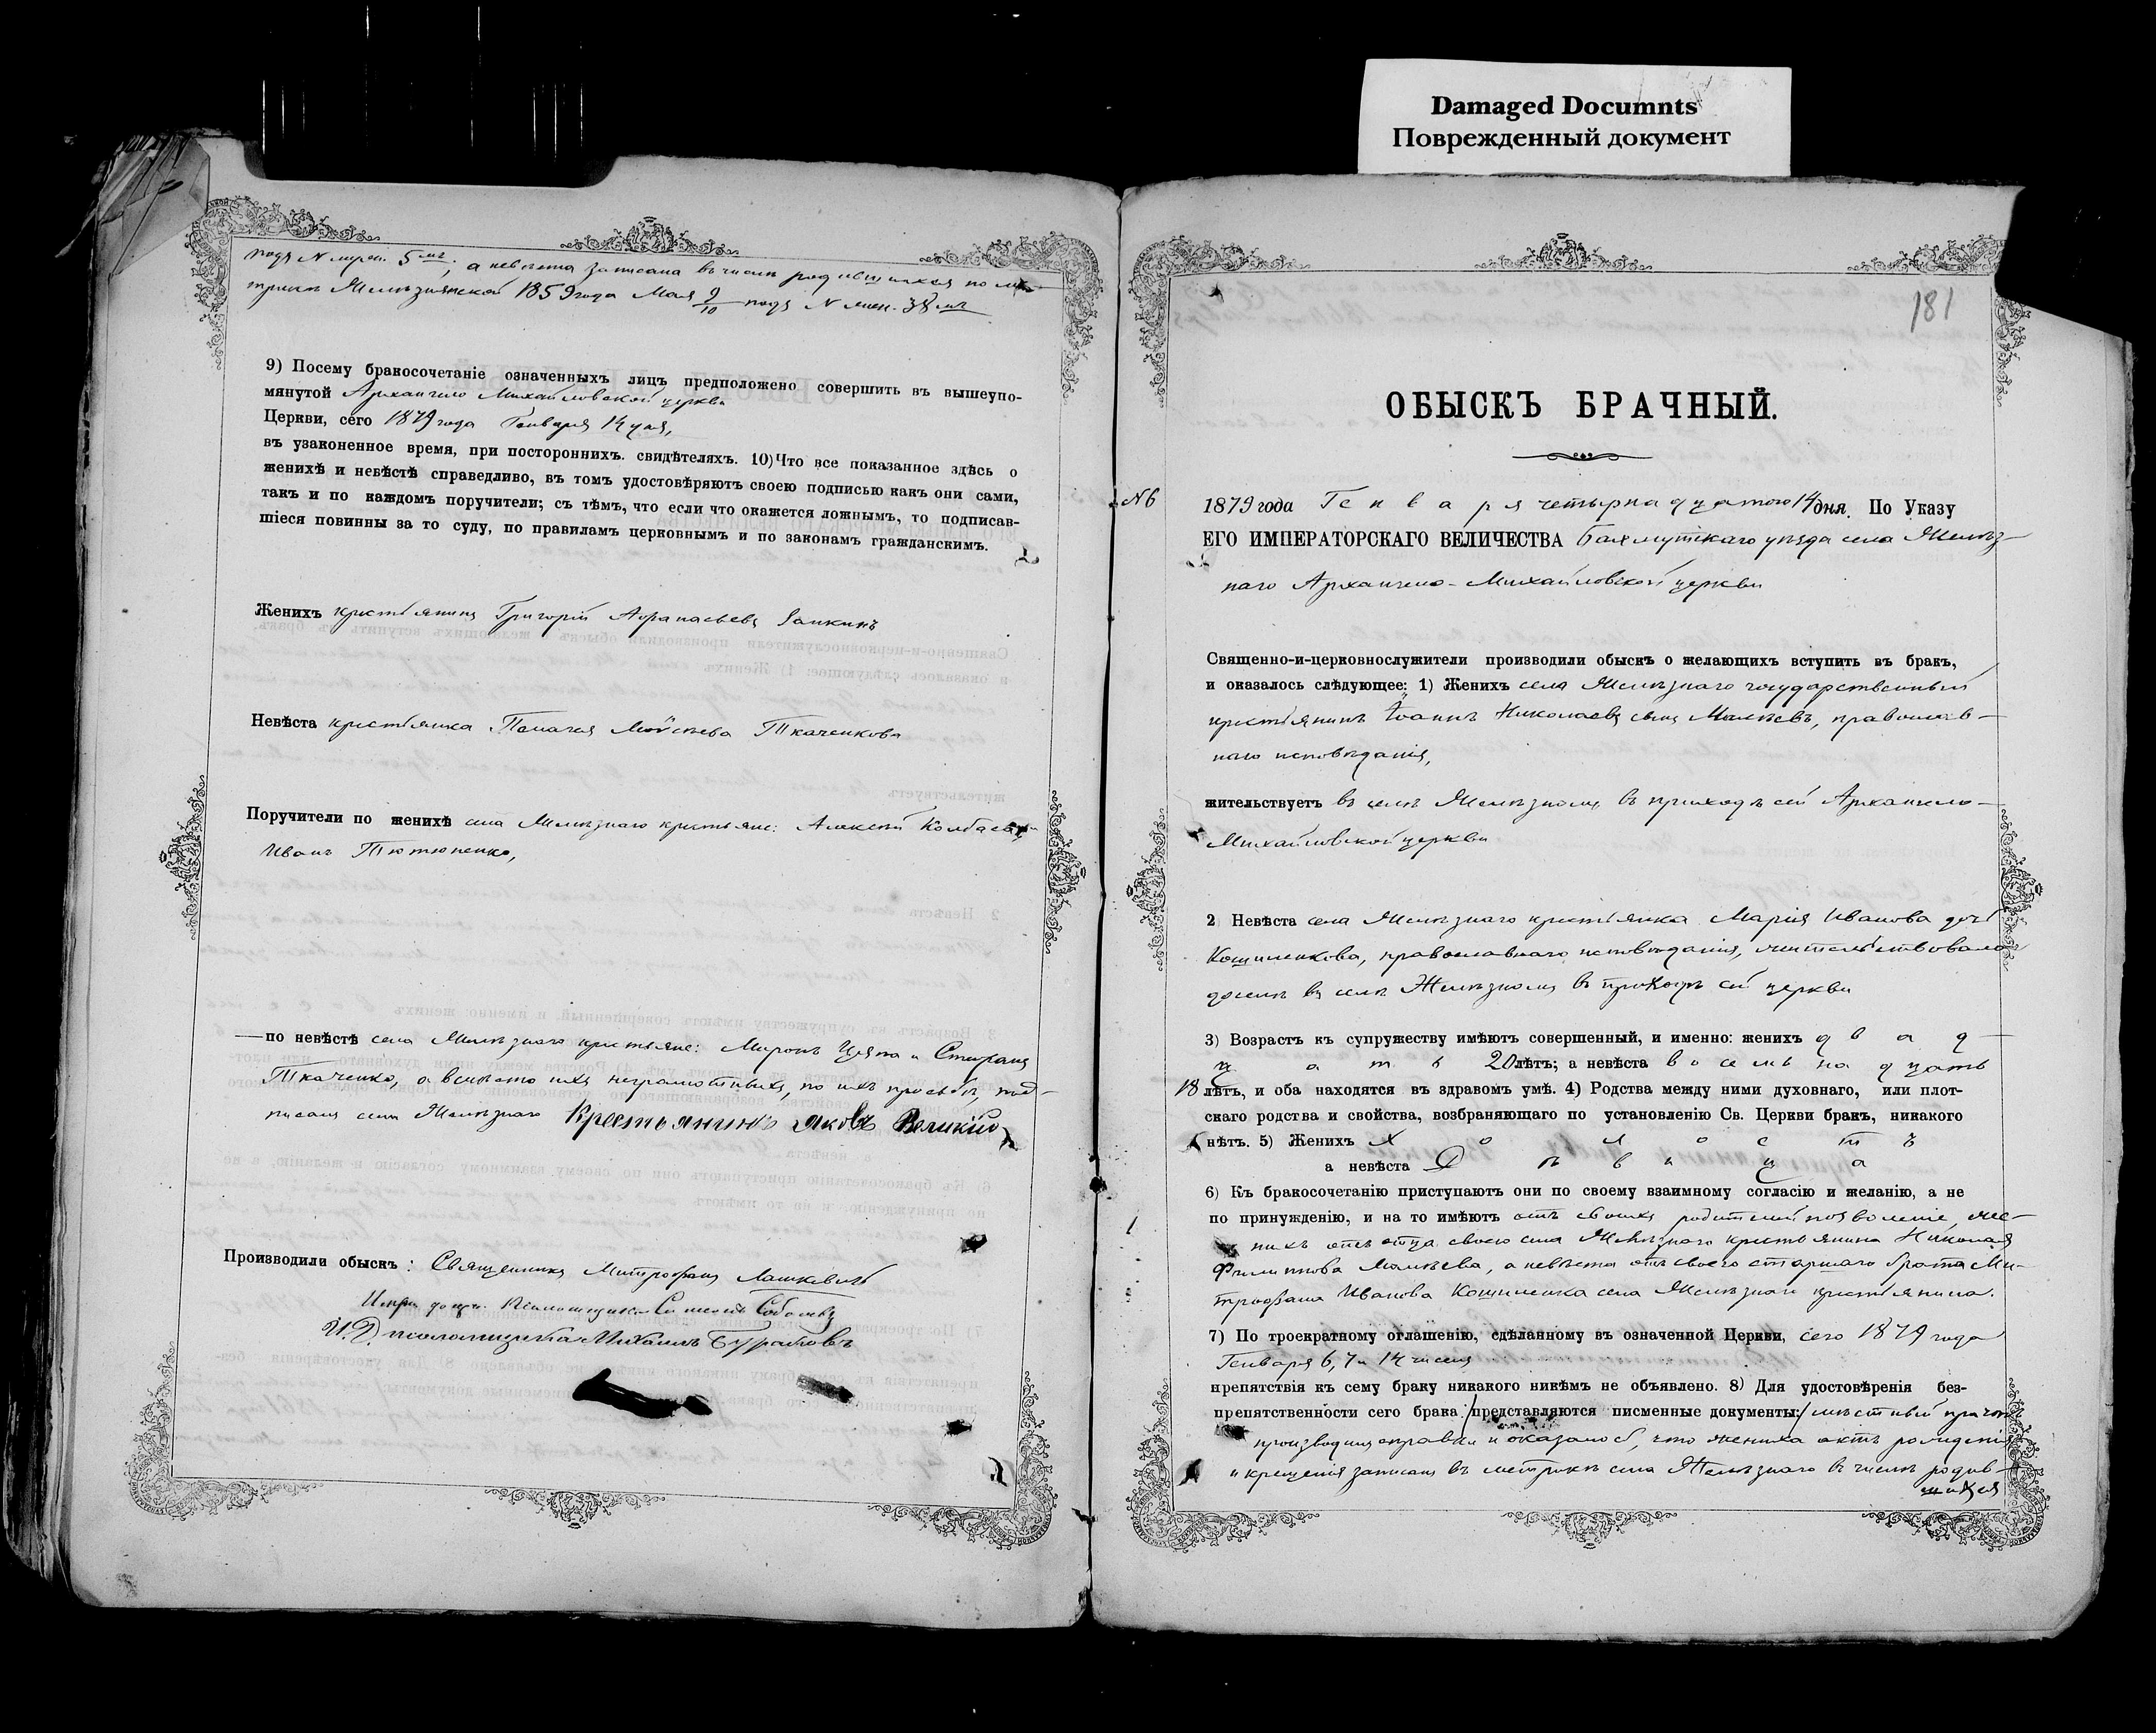 Damaged Documnts
Поврежденный документ
подъ N мужеск. 5мъ, а невѣста записана въ числѣ родившихся по ме-
трикѣ Желѣзнянской 1859 года Мая 9/10 подъ N жен. 38мъ
9) Посему бракосочетаніе означенныхъ лицъ предположено совершить въ вышеупо-
мянутой Архангело Михайловской церкви
Церкви, сего 1879 года Генваря 14 дня,
въ узаконенное время, при постороннихъ. свидѣтеляхъ. 10) Что все показанное здѣсь о
женихѣ и невѣстѣ справедливо, въ томъ удостовѣряютъ своею подписью какъ они сами,
такъ и по каждомъ поручители; съ тѣмъ, что если что окажется ложнымъ, то подписав-
шіеся повинны за то суду, по правиламъ церковнымъ и по законамъ гражданскимъ.
Женихъ крестьянинъ Григорій Аѳанасьевъ Заикинъ
Невѣста крестьянка Пелагея Моѵсѣева Ткаченкова
Поручители по женихѣ села Желѣзнаго крестьяне: Алексѣй
Иванъ Тютюненко,
по невѣстѣ села Желѣзнаго крестьяне: Миронъ и Стефанъ
Ткаченко, а вмѣсто ихъ неграмотныхъ, по ихъ просьбѣ, под-
писалъ села Желѣзнаго Крестьянинъ Яковъ Великій
Производили обыскъ: Священникъ Митрофанъ Лашкевичъ
Псаломщика Соболевъ
И. Д. псаломщика Михаилъ
181
ОБЫСКЪ БРАЧНЫЙ.
N 6 1879 года Генваря четырнадцатого 14 дня. По Указу
ЕГО ИМПЕРАТОРСКАГО ВЕЛИЧЕСТВА Бахмутскаго уѣзда села Желѣз-
наго Архангело-Михайловской церкви
Священно-и-церковнослужители производили обыскъ о желающихъ вступить въ бракъ,
и оказалось слѣдующее: 1) Женихъ села Желѣзнаго государственный
крестьянинъ Іоаннъ Николаевъ сынъ Малѣевъ, православ-
наго исповѣданія,
жительствуетъ въ селѣ Желѣзномъ въ приходѣ сей Архангело-
Михайловской церкви
2 Невѣста села Желѣзнаго крестьянка Марія Иванова дочь
Кошиленкова, православнаго исповѣданія, жительствовала
доселѣ въ селѣ Желѣзномъ въ приходѣ сей церкви
3) Возрастъ къ супружеству имѣютъ совершенный, и именно: женихъ двад-
цать 20 лѣтъ; а невѣста восемнадцать
18 лѣтъ, и оба находятся въ здравомъ умѣ. 4) Родства между ними духовнаго, или плот-
скаго родства и свойства, возбраняющаго по установленію Св. Церкви бракъ, никакого
нѣтъ. 5) Женихъ Холостъ
а невѣста Дѣвица
6) Къ бракосочетанію приступаютъ они по своему взаимному согласію и желанію, а не
по принужденію, и на то имѣютъ отъ своихъ родителей позволеніе, же-
нихъ отъ отца своего села Желѣзнаго крестьянина Николая
Филиппова Малѣева, а невѣста отъ своего старшаго брата Ми-
трофана Иванова Кошиленка села Желѣзнаго крестьянина.
7) По троекратному оглашенію, сдѣланному въ означенной Церкви, сего 1879 года
Генваря 6, 7 и 14 чиселъ
препятствія къ сему браку никакого никѣмъ не объявлено. 8) Для удостовѣренія без-
препятственности сего брака /представляются писменные документы:/ мѣстный причтъ
производилъ справки и оказалось, что жениха актъ рожденія
и крещенія записанъ въ метрикѣ села Желѣзнаго въ числѣ родив-
шихся